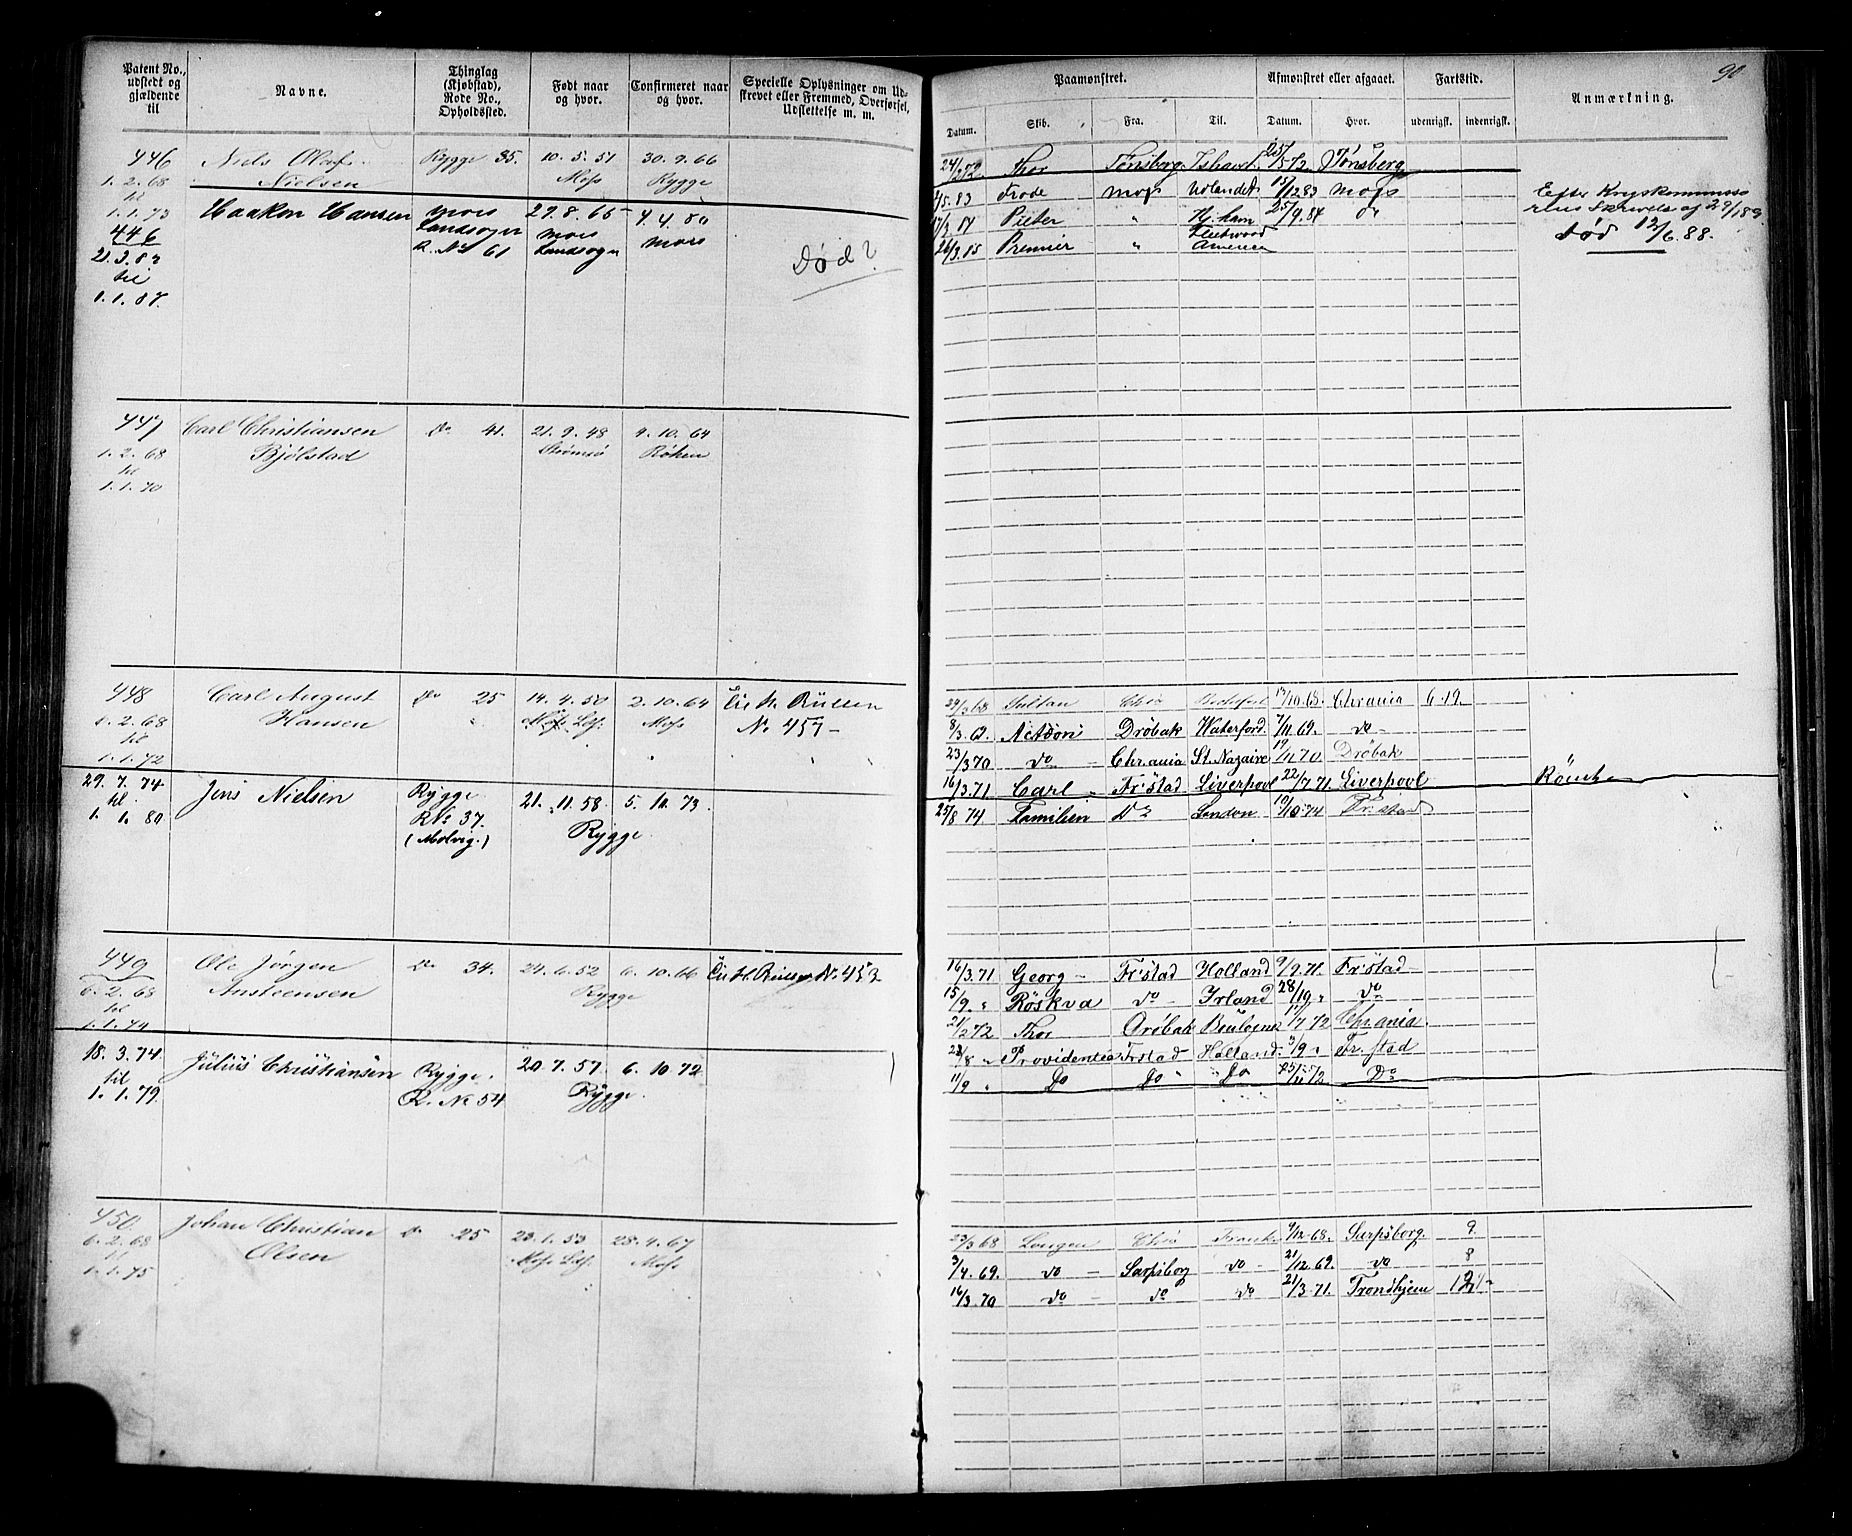 90
Patent No., udstedt og gjældende til
Navne.
Thinglag (Kjøbstad), Rode No., Opholdssted.
Født naar og hvor.
Confirmeret naar og hvor.
Specielle Oplysninger om Udskrevet eller Fremmed, Overførsel, Udslettelse m. m.
Paamønstret.
Afmønstret eller afgaaet.
Fartstid.
Anmærkning.
Datum. Skib. Fra. Til. Datum. Hvor. udenrigsk. indenrigsk.
446 Niels Olaf Rygge 35. 10. 5. 51 30. 9. 66
1. 2. 68 Nielsen Moss Rygge
til
1. 1. 73 Haakon Hansen Moss 29. 8. 65 4. 4. 80
446 Landsogn Moss Moss
21. 3. 83 R. No 61 Landsogn
til
1. 1. 87.
Død?
24/2 72 Thor Tønsberg Ishavet 25/5 72 Tønsberg
/5. 83 Frode Moss Udlandet 15/12 83 Moss
Pieter " H. ham 25/9. 84 do
Fleetwood
26/3. 85 Premier " America
Død 12/6. 88.
447 Carl Christiansen Do 41. 21. 9. 48 9. 10. 64
1. 2. 68 Bjølstad Strømsø Røken
til
1. 1. 70
448 Carl August Do 25 14. 4. 50 2. 10. 64
1. 2. 68 Hansen Moss Lds. Moss No. 457
til
1. 1. 72
29. 7. 74 Jens Nielsen Rygge 21. 11. 58. 5. 10. 73.
til R No 37. Rygge
1. 1. 80 (Molvig.)
29/3 68 Sultan Chra 13/10. 68. Chrania 6. 19.
8/3. 69. Actæon Drøbak Waterford 7/11 69. do
23/3 70 do Chrania St. Nazaire 19/11 70 Drøbak
16/3. 71. Carl Fr:stad Liverpool 22/7. 71. Liverpool
25/8 74 Familien Do London 19/10 74 Fr: stad
449 Ole Jørgen Do 34. 24. 6. 52 6. 10. 66 No. 453
6. 2. 68 Ansteensen Rygge
til
1. 1. 74
18. 3. 74. Julius Christiansen Rygge. 20. 7. 57 6. 10. 72
til R. No 54 Rygge.
1. 1. 79.
16/3. 71 Georg Fr:stad Holland 9/9. 71. Fr:stad
15/9. " Røskva do Irland 28/10. " do
21/2 72 Thor Drøbak Boulogne 17/7 72 Chrania.
23/8 " Providentia Fr:stad Holland 3/9 " Fr. stad
11/9 " Do Do Do 25/11 72 Do
450 Johan Christian Do 25 23. 1. 53 28. 4. 67
6. 2. 68 Olsen Moss Lds. Moss
til
1. 1. 75
23/3 68 Lougen Chra Frank. 9/12 68. Sarpsborg. 9.
3/4. 69. do Sarpsborg do 21/12. 69. do 8
16/3. 70 do do do 21/3. 71. Trondhjem